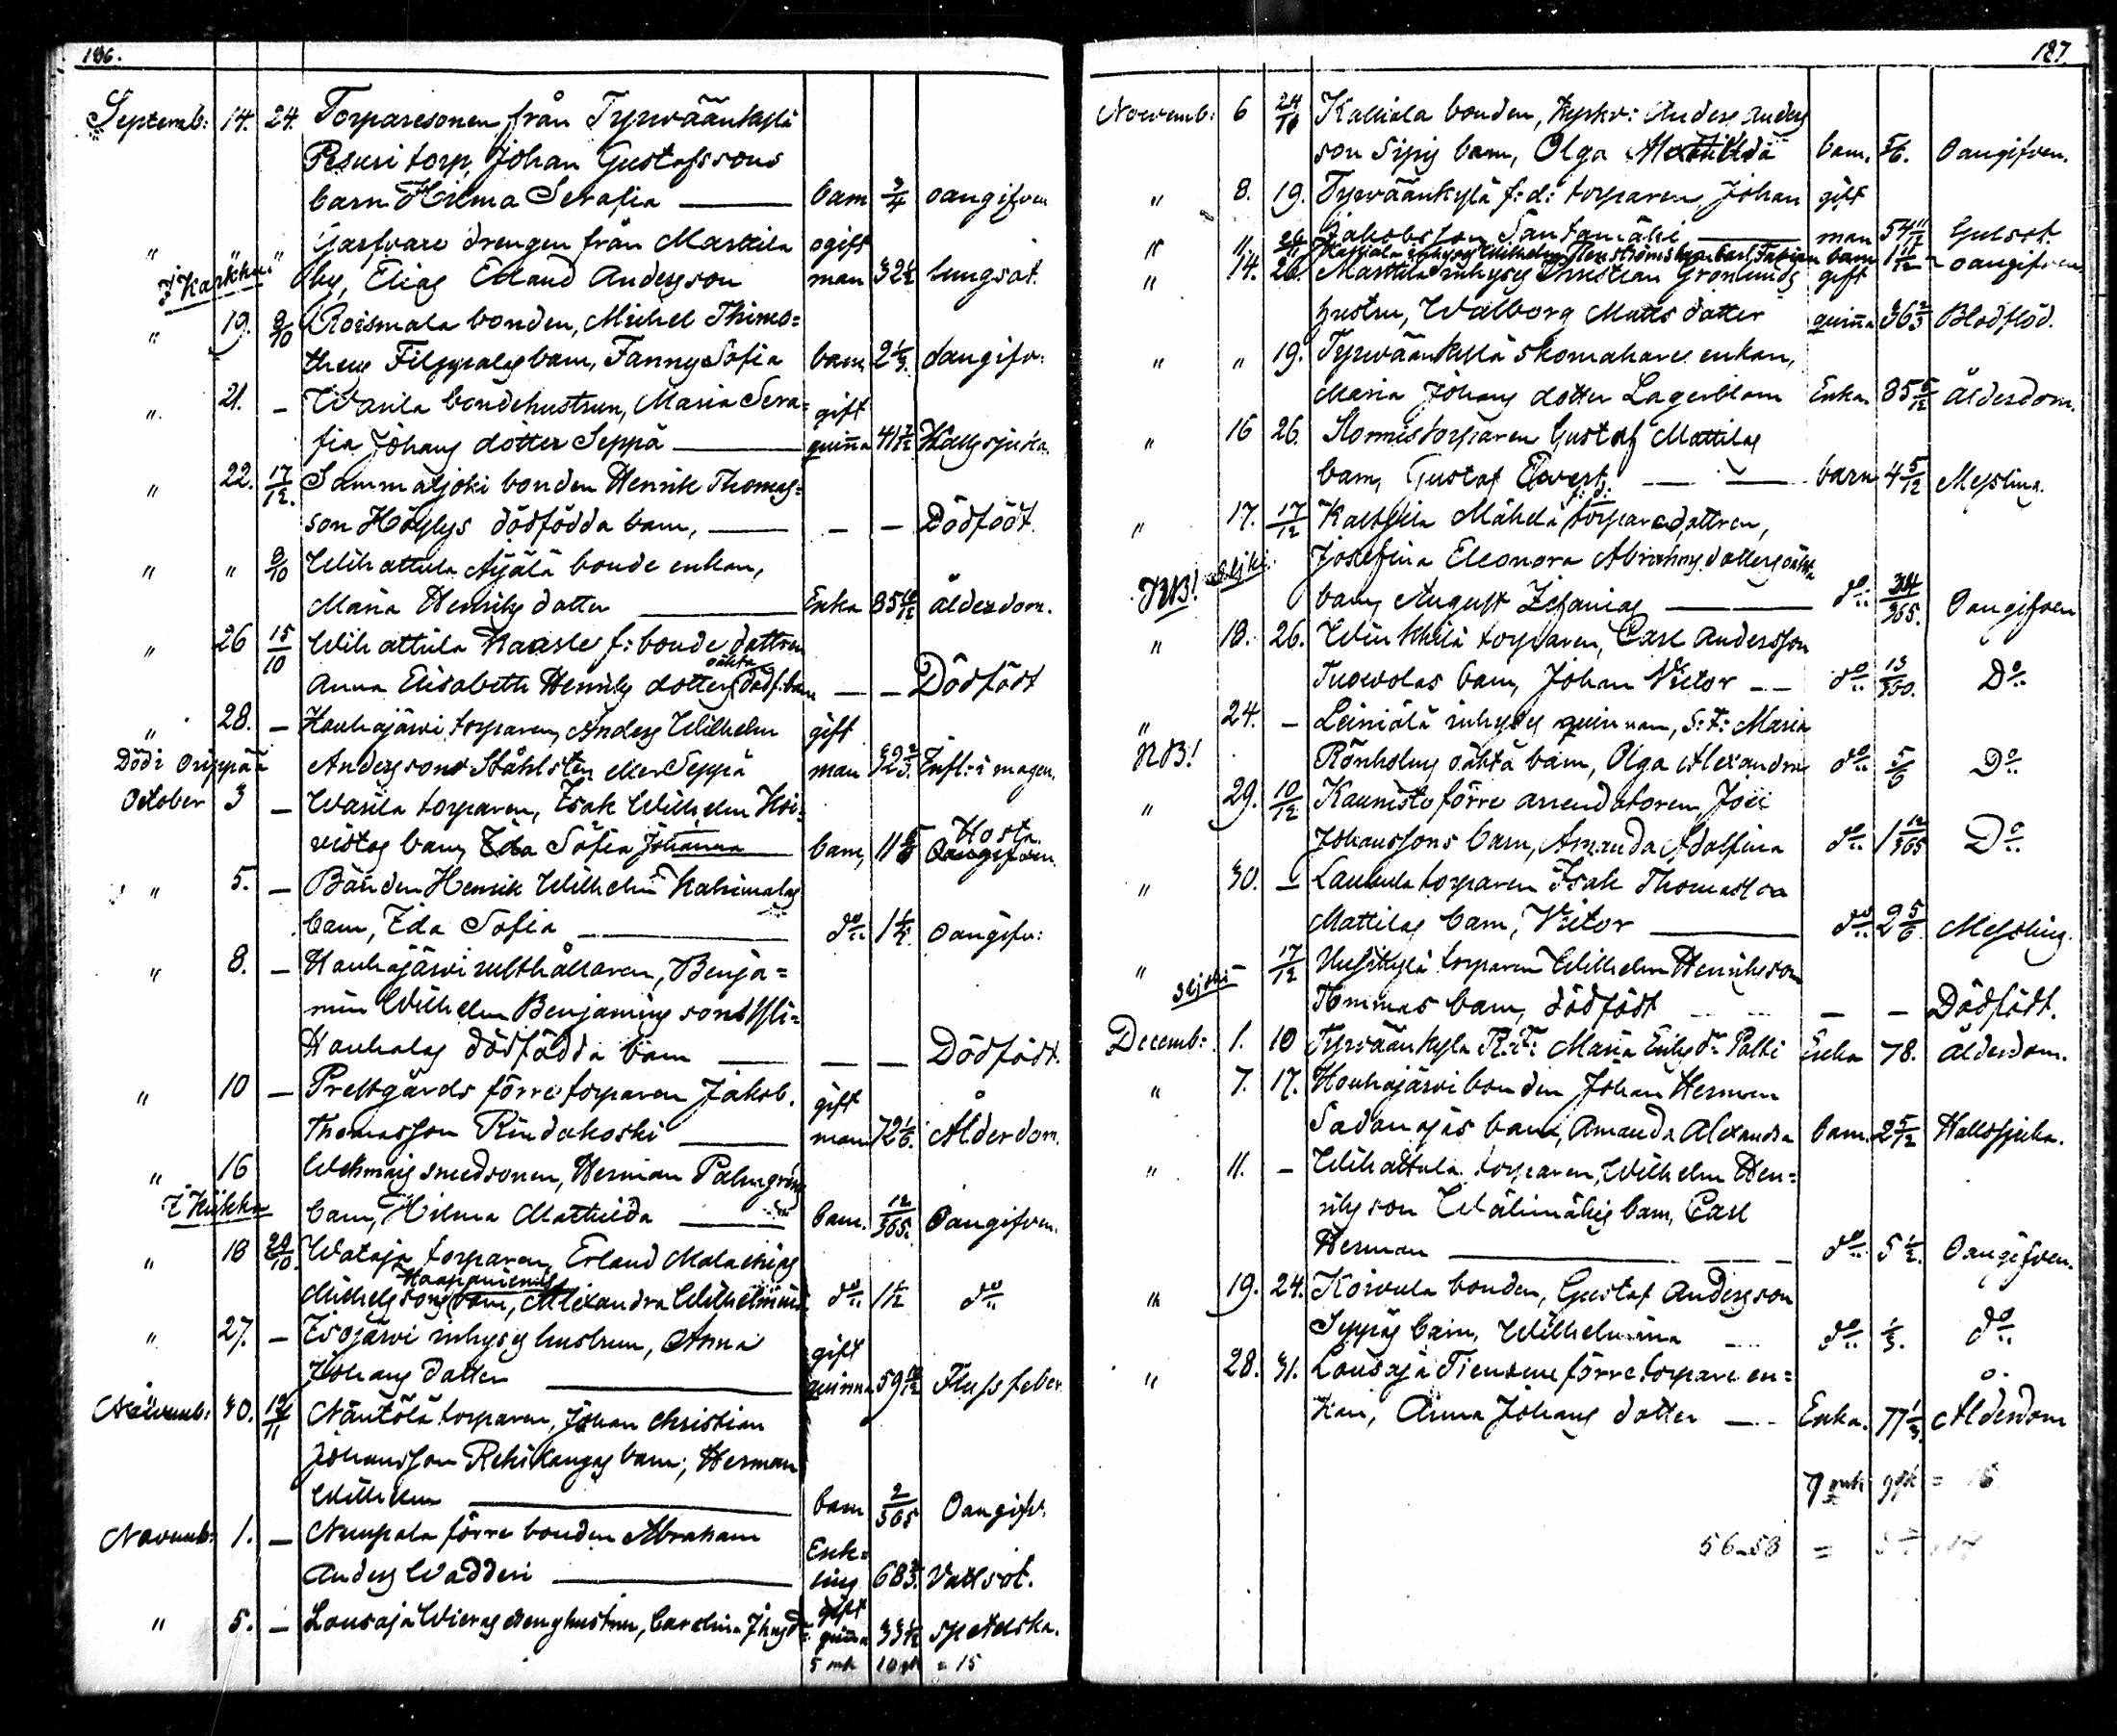 186.
Septemb: 14. 24. Torparesonen från Tyrwäänkylä
Pesuri torp, Johan Gustafssons
barn Hilma Serafia — barn 3/4 oangifven
" " " Garfvare drengen från Marttila ogift
I Karkku by, Elias Erland Andersson man 32 1/2 lungsot.
" 19. 9/10 Roismala bonden, Michel Thimo=
theus Filppulas barn, Fanny Sofia barn 2 1/3. oangifv:
" 21. — Warila bondehustrun, Maria Sera= gift
fia Johans dotter Seppä — quinna 41 7/12 Halssjuka.
" 22. 17/12. Sammaljoki bonden Henrik Thomas=
son Höylys dödfödda barn, — — — Dödfödt.
" " 9/10 Wihattula Äijälä bonde enkan,
Maria Henriks dotter — Enka 85 10/12 ålderdom.
" 26 15/10 Wihattula Naarle f: bonde dottren
Anna Elisabeth Henriks dotters oäkta dödf. barn — — Dödfödt
" 28. — Houhajärwi torparen, Anders Wilhelm gift
Död i Orippää Anderssons Ståhlsten eller Seppä man 32 2/3. Infl: i magen.
October 3 — Warila torparen, Isak Wilhelm Koi=
vistos barn, Ida Sofia Johanna barn, 11 Hosta. Oangifven.
" 5. — Bonden Henrik Wilhelm
barn, Ida Sofia — do 1 1/4. oangifv:
" 8. — Houhajärwi Benja=
min Wilhelm Benjamins sons Yli=
Houhalas dödfödda barn — — — Dödfödt.
" 10 — Prestgårds förre torparen Jakob. gift
Thomasson Rindakoski — man 72 1/6. Ålderdom.
" 16 Wehmais smedsonen, Herman Palmgrens
I Kiikka barn, Hilma Mathilda — barn. 12/365. Oangifven.
" 18 29/10. Wataja torparen, Erland Malachias
Michelssons Haapaniemis barn, Alexandra Wilhelmina do 1 1/12 do
" 27. — Isojärwi inhyses hustrun, Anna gift
Johans dotter — quinna 59 10/12 Flussfeber
30. 12/11 Näntölä torparen, Johan Christian
Johansson Rekikangas barn, Herman
Wilhelm — barn 2/365 Oangifv.
Novemb: 1. — Nuupala förre bonden Abraham Enk=
Anders Wadderi — ling 68 3/4. Vattsot.
" 5. — Lousaja Wieras drenghustrun, Carolina Johansdr. gift quinna 33 1/12 spetelska.
5 mk 10 qk = 15
187
Novemb: 6 24/11 Kalliala bonden, Kyrkv: Anders Anders
son Sipis barn, Olga Matilda barn. 5/6. Oangifven.
" 8. 19. Tyrwäänkylä f: d: torparen, Johan gift
Jakobsson Santamäki — man 54 11/12 Gulsot.
" 11. 24/11 Kallila inhyses Wilhelm Flenströms barn Carl Fabian barn 1 11/12 oangifven
" 14. 26. Marttila inhyses Christian Grönlunds gift
hustru, Walborg Matts dotter quinna 36 2/3 Blodflöd.
" " 19. Tyrwäänkylä skomakare enkan,
Maria Johans dotter Lagerblom Enka 85 5/12 Ålderdom.
" 16 26. Stormis torparen Gustaf Mattilas
barn, Gustaf Evert — barn 4 5/12 Messling.
" 17. 17/12 Mähelä f: d: torparedottren,
Josefina Eleonora Abrahms. dotters oäkta
NB! barn, August Zefanias — do 34/365. Oangifven
" 18. 26. torparen, Carl Andersson
Tuowolas barn, Johan Victor — do 13/360. Do
" 24. — Leiniälä inhyses quinnan, S: F: Maria
NB! Rönholms oäkta barn, Olga Alexandra do 5/6 Do
" 29. 10/12 Kaunisto förre arrendatoren, Joel
Johanssons barn, Amanda Adolfina do 1 12/365 Do
" 30. — Laukula torparen Isak Thomasson
Mattilas barn, Victor — do 2 5/6. Messling.
" 17/12 Uusikylä torparen Wilhelm Henriksson
Tommas barn, dödfödt — — Dödfödt.
Decemb: 1. 10 Tyrwäänkylä R: F: Maria Eriks dr. Palki Enka 78. Ålderdom.
" 7. 17. Houhajärwi bonden Johan Herman
Sadanojas barn, Amanda Alexandra barn. 2 5/12 Halssjuka.
" 11. — Wihattula torparen, Wilhelm Hen=
riksson Wälimäkis barn, Carl
Herman — do 5 1/2. Oangifven.
" 19. 24. Koivula bonden, Gustaf Andersson
Seppäs barn, Wilhelmina do 1/3. do
" 28. 31. Lousaja Tiensuu förre torpare en=
kan, Anna Johans dotter — Enka. 77 1/3. Ålderdom
7 mk 9 qk = 16
56-58 =